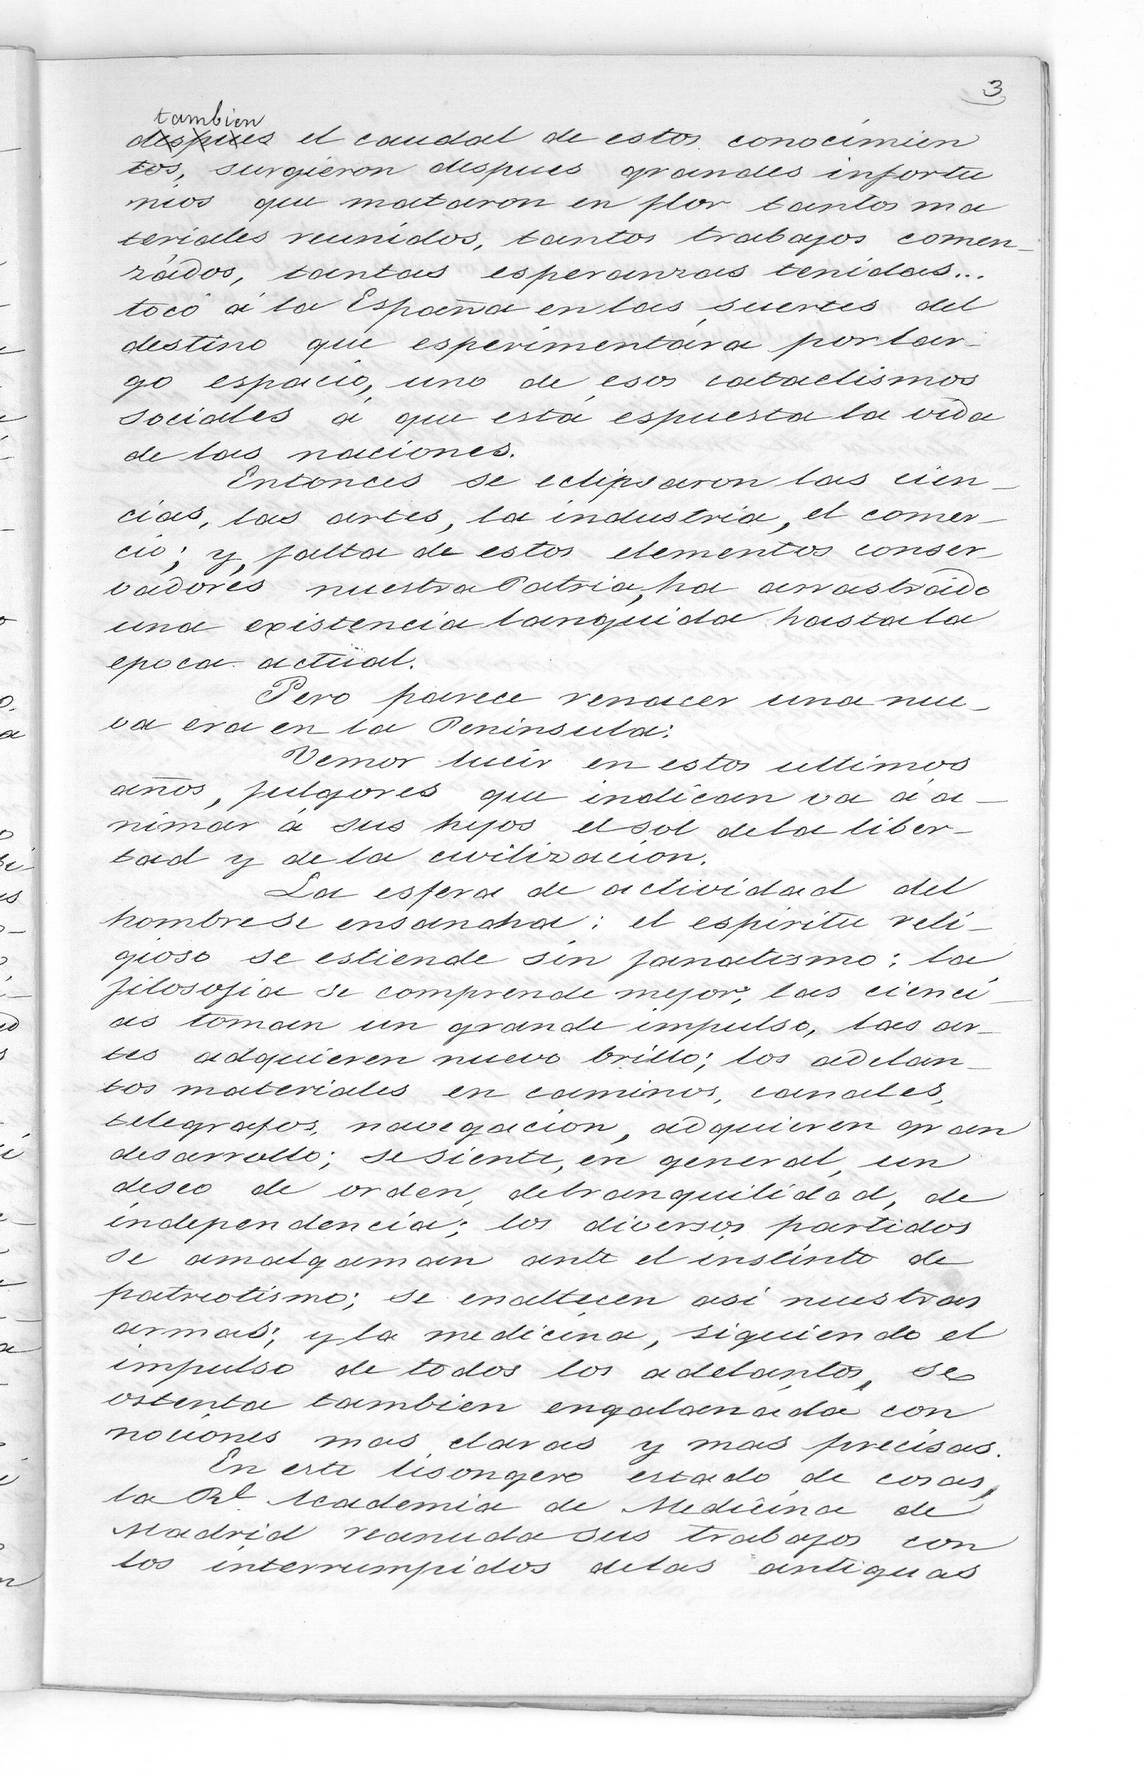 3
tambien
despues el caudal de estos conocimien
tos, surgieron despues grandes infortu
nios que mataron en flor tantos ma
teriales reunidos, tantos trabajos comen_
zados, tantas esperanzas tenidas...
tocó á la España en las suertes del
destino que esperimentára por lar_
go espacio, uno de esos cataclismos
sociales á que está espuesta la vida
de las naciones.
Entonces se eclipsaron las cien_
cias, las artes, la industria, el comer_
cio; y, falta de estos elementos conser_
vadores nuestra Patria, ha arrastrado
una existencia languida hasta la
epoca actüal.
Pero parece renacer una nue_
va era en la Peninsula:
Vemor lucir en estos ultimos
años, fulgores que indican va á a_
nimar á sus hijos el sol de la liber_
tad y de la civilizacion.
La esfera de actividad del
hombre se ensancha: el espiritu reli_
gioso se estiende sin fanatismo: la
filosofia se comprende mejor; las cienci_
as toman un grande impulso, las ar_
tes adquieren nuevo brillo; los adelan_
tos materiales en caminos, canales,
telegrafos, navegacion, adquieren gran
desarrollo; se siente, en general, un
deseo de orden, de tranquilidad, de
independencia; los diversos partidos
se amalgaman ante el instinto de
patriotismo; se enaltecen asi nuestras
armas; y la medicina, siguiendo el
impulso de todos los adelantos, se
ostenta tambien engalanada con
nociones mas claras y mas precisas.
En este lisongero estado de cosas,
la Rl. Academia de Medicina de
Madrid reanuda sus trabajos con
los interrumpidos de las antiguas